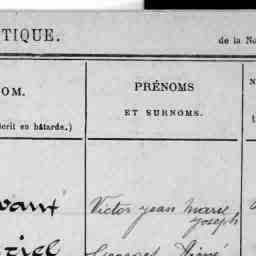 TIQUE.
de la No
OM.
PRÉNOMS
ET SURNOMS.
N
écrit en bâtarde.)
vant Victor jean marie
joseph
riel Georges Aimé